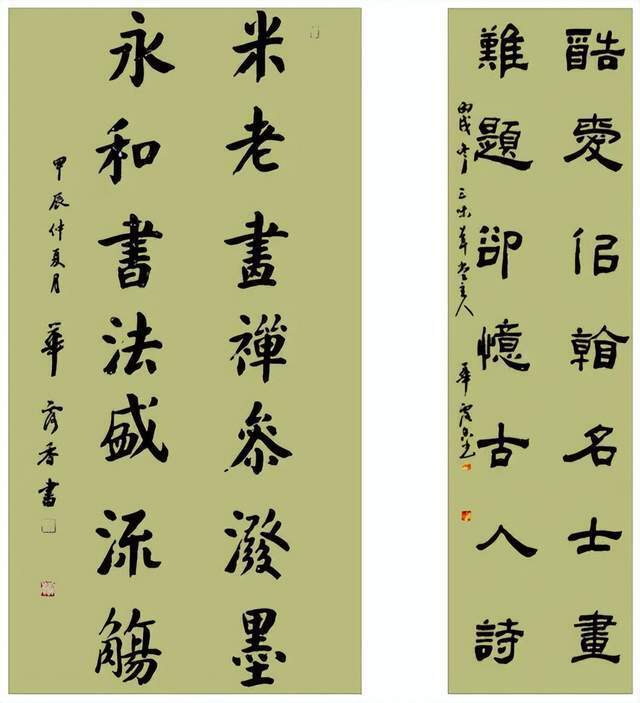 米老畫禪參潑墨
永和書法盛流觴
甲辰仲夏月 華香書
酷愛翰名士畫
難題卻憶古人詩
丙戌冬 三味草堂主人 華